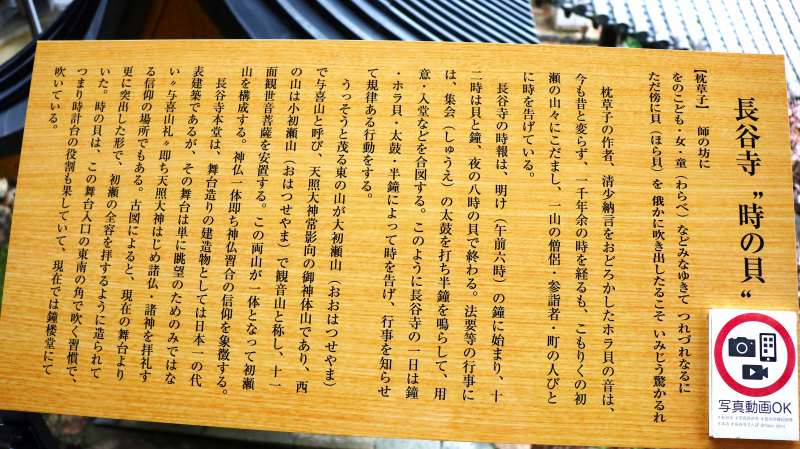 長谷寺〝時の貝〟
【枕草子】　師の坊に
をのこども・女・童（わらべ）などみなゆきて　つれづれなるに
ただ傍に貝（ほら貝）を　俄かに吹き出したるこそ　いみじう驚かるれ
枕草子の作者、清少納言をおどろかしたホラ貝の音は、
今も昔と変らず、一千年余の時を経るも、こもりくの初
瀬の山々にこだまし、一山の僧侶・参詣者・町の人びと
に時を告げている。
長谷寺の時報は、明け（午前六時）の鐘に始まり、十
二時は貝と鐘、夜の八時の貝で終わる。法要等の行事に
は、集会（しゅうえ）の太鼓を打ち半鐘を鳴らして、用
意・入堂などを合図する。このように長谷寺の一日は鐘
・ホラ貝・太鼓・半鐘によって時を告げ、行事を知らせ
て規律ある行動をする。
うっそうと茂る東の山が大初瀬山（おおはつせやま）
で与喜山と呼び、天照大神常影向の御神体山であり、西
の山は小初瀬山（おはつせやま）で観音山と称し、十一
面観世音菩薩を安置する。この両山が一体となって初瀬
山を構成する。神仏一体即ち神仏習合の信仰を象徴する。
長谷寺本堂は、舞台造りの建造物としては日本一の代
表建築であるが、その舞台は単に眺望のためのみではな
い〝与喜山礼〟即ち天照大神はじめ諸仏・諸神を拝礼す
る信仰の場所でもある。古図によると、現在の舞台より
更に突出した形で、初瀬の全容を拝するように造られて
いた。時の貝は、この舞台入口の東南の角で吹く習慣で、
つまり時計台の役割も果していて、現在では鐘楼堂にて
吹いている。
写真動画OK